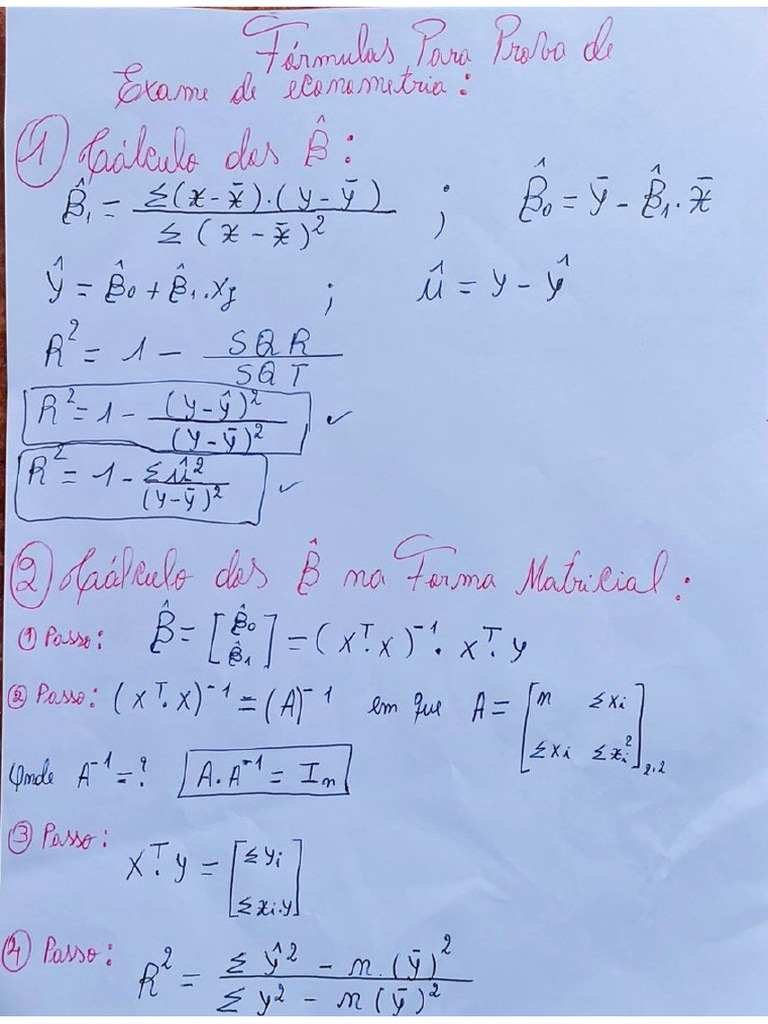 Fórmulas Para Prova de
Exame de econometria:
① Cálculo dos B̂:
B̂₁ = Σ(x - x̄).(y - ȳ) / Σ(x - x̄)² ; B̂₀ = ȳ - B̂₁.x̄
ŷ = B̂₀ + B̂₁.xj ; û = y - ŷ
R² = 1 - SQR / SQT
R² = 1 - (y - ŷ)² / (y - ȳ)² ✓
R² = 1 - Σû² / (y - ȳ)² ✓
② Cálculo dos B̂ na Forma Matricial:
① Passo: B̂ = [B̂₀ B̂₁] = (xᵀ.x)⁻¹. xᵀ.y
② Passo: (xᵀ.x)⁻¹ = (A)⁻¹ em que A = [n Σxi Σxi Σxi²]₂.₂
Onde A⁻¹ = ? A.A⁻¹ = In
③ Passo:
xᵀ.y = [Σyi Σxi.y]
④ Passo: R² = Σŷ² - n.(ȳ)² / Σy² - n(ȳ)²